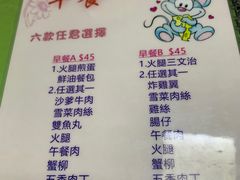 早餐
六款任君選擇
早餐A $45
1.火腿煎蛋
鮮油餐包
2.任選其一
沙爹牛肉
雪菜肉絲
雙魚丸
火腿
午餐肉
蟹柳
五香肉丁
早餐B $45
1.火腿三文治
2.任選其一
炸雞翼
雪菜肉絲
雞絲
腸仔
午餐肉
火腿
蟹柳
五香肉丁